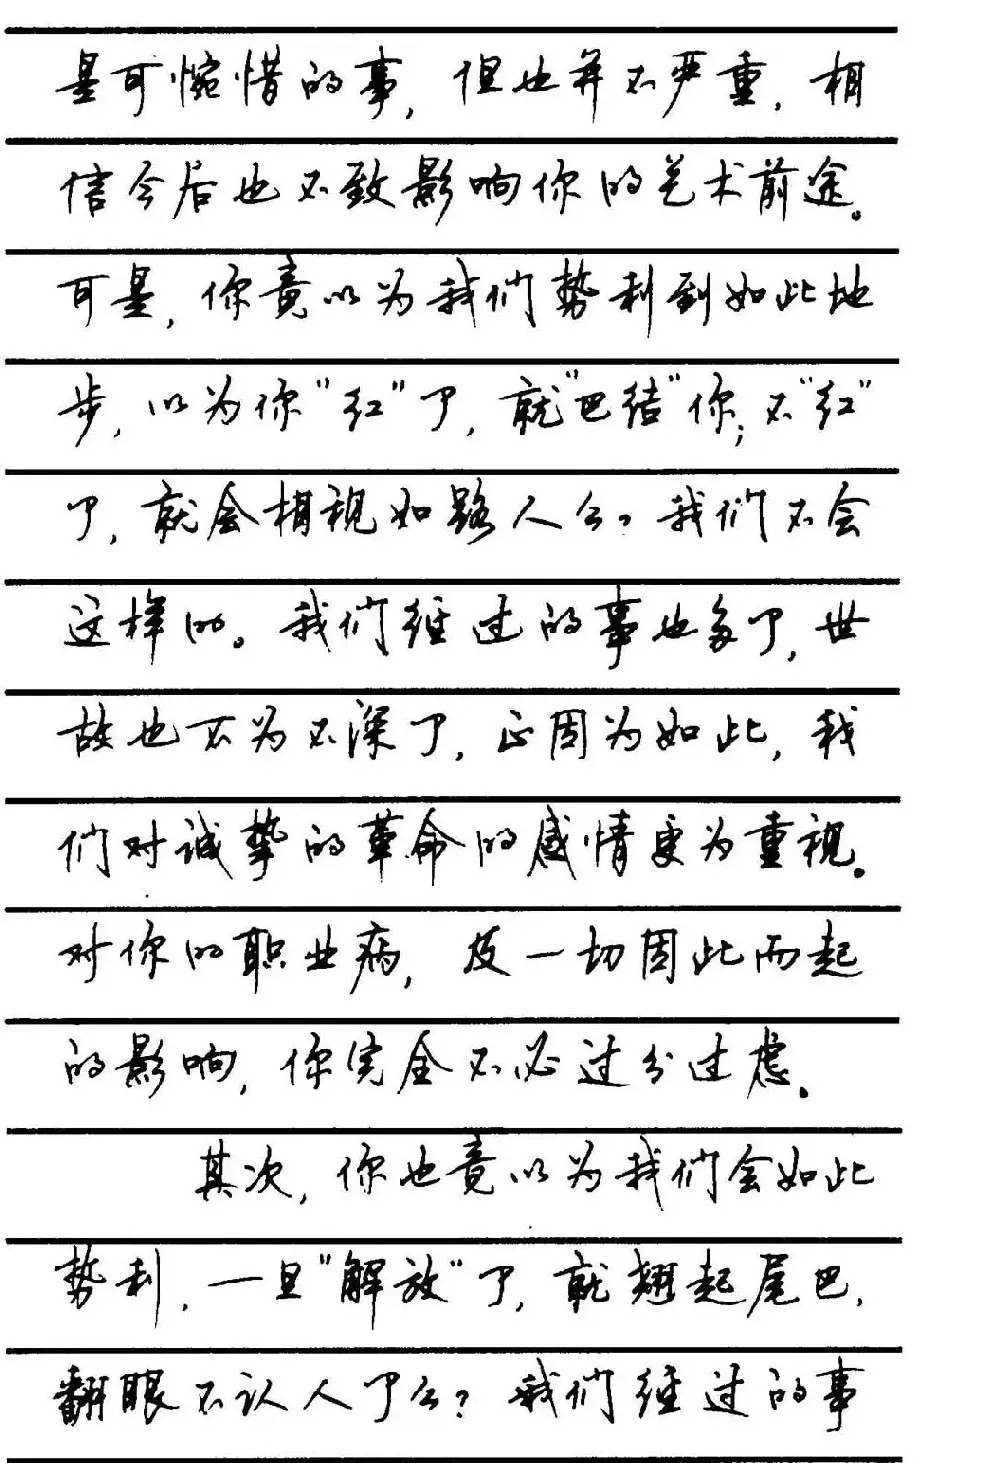 是可惋惜的事，但也并不严重，相
信今后也不致影响你的艺术前途。
可是，你竟以为我们势利到如此地
步，以为你“红”了，就“巴结”你；不“红”
了，就会相视如路人么？我们不会
这样的。我们经过的事也多了，世
故也不为不深了，正因为如此，我
们对诚挚的革命的感情更为重视。
对你的职业病，及一切因此而起
的影响，你完全不必过分过虑。
其次，你也竟以为我们会如此
势利，一旦“解放”了，就翘起尾巴，
翻眼不认人了么？我们经过的事